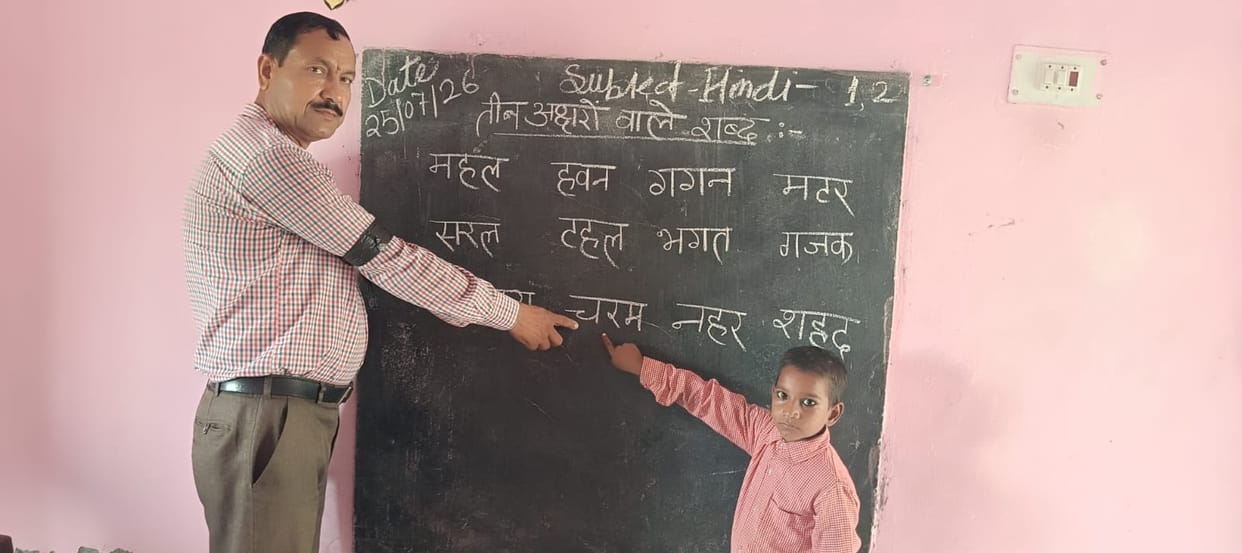 Date
25/07/26
Subject - Hindi - 1, 2
तीन अक्षरों वाले शब्द :-
महल हवन गगन मटर
सरल टहल भगत गजक
चरम नहर शहद